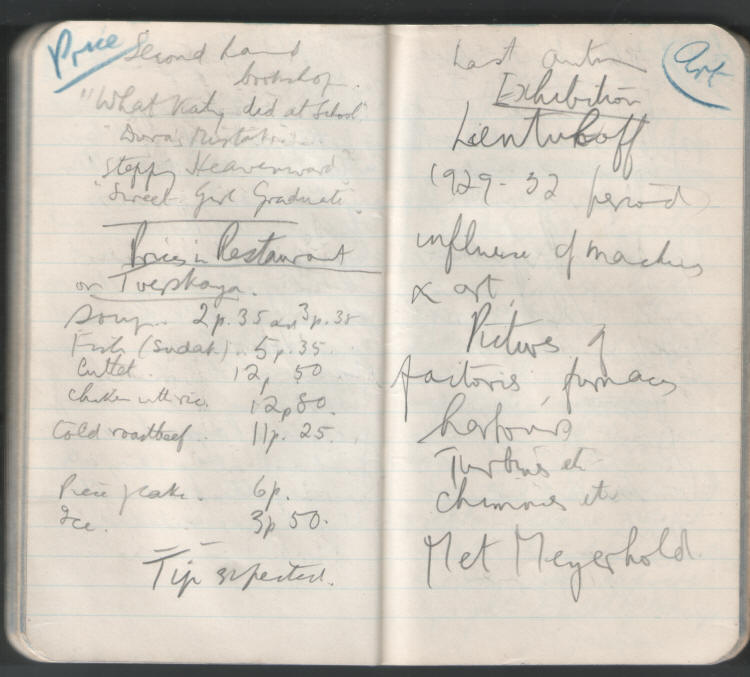 Price
Second hand
bookshop.
"What Katy did at School"
"Dora's
"Stepping Heavenward"
"Sweet Girl Graduate"
Prices in Restaurant
on Tverskaya.
Soup. 2p.35 and 3p.35
Fish (Sudak). 5p.35.
Cutlet. 12p 50
Chicken with rice. 12p80.
Cold roastbeef. 11p. 25.
Piece of cake. 6p.
Ice. 3p 50.
Tip expected.
Art
Last autumn
Exhibition
Lentukoff
1929-32 period
influence of machines
& art.
Pictures of
factories, furnaces
harbours
Turbines etc
chimnies etc
Met Meyerhold.